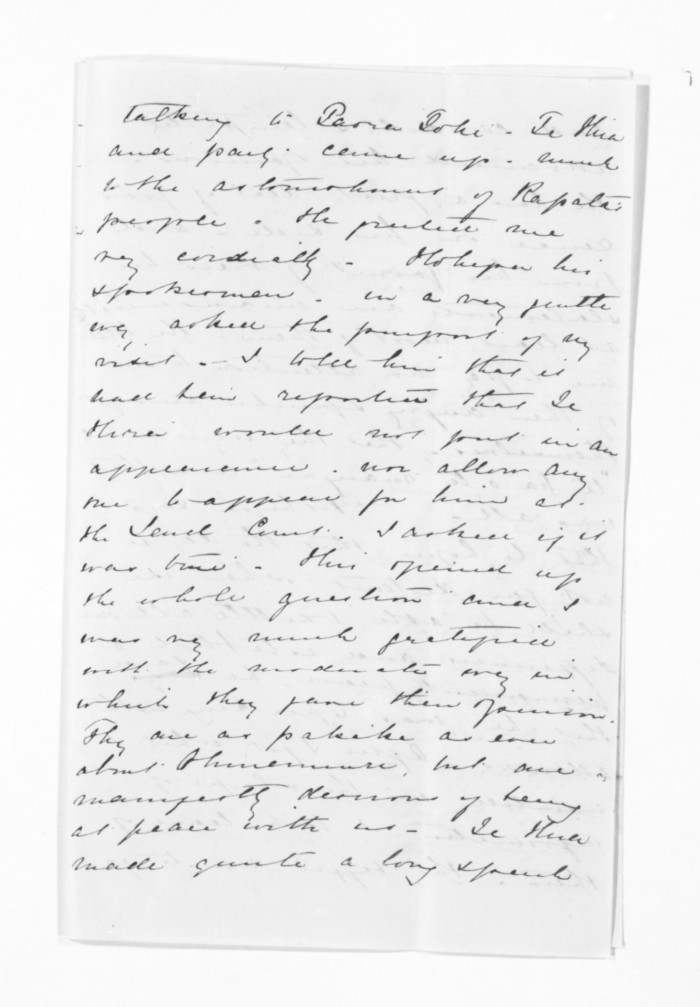 talking to Paora Toki - Te Hira
and party came up - much
to the astonishment of Rapatai
people - He greeted me
very cordially - Hohepa his
spokesman - in a very gentle
way asked the purport of my
visit - I told him that it
had been reported that Te
Hira would not put in an
appearance - nor allow any
one to appear for him at
the Land Court. I asked if it
was true - This opened up
the whole question and I
was very much gratified
with the moderate way in
which they gave their opinion.
They are as pakeke as ever
about Ohinemuri, but are
manifestly desirous of being
at peace with us - Te Hira
made quite a long speech